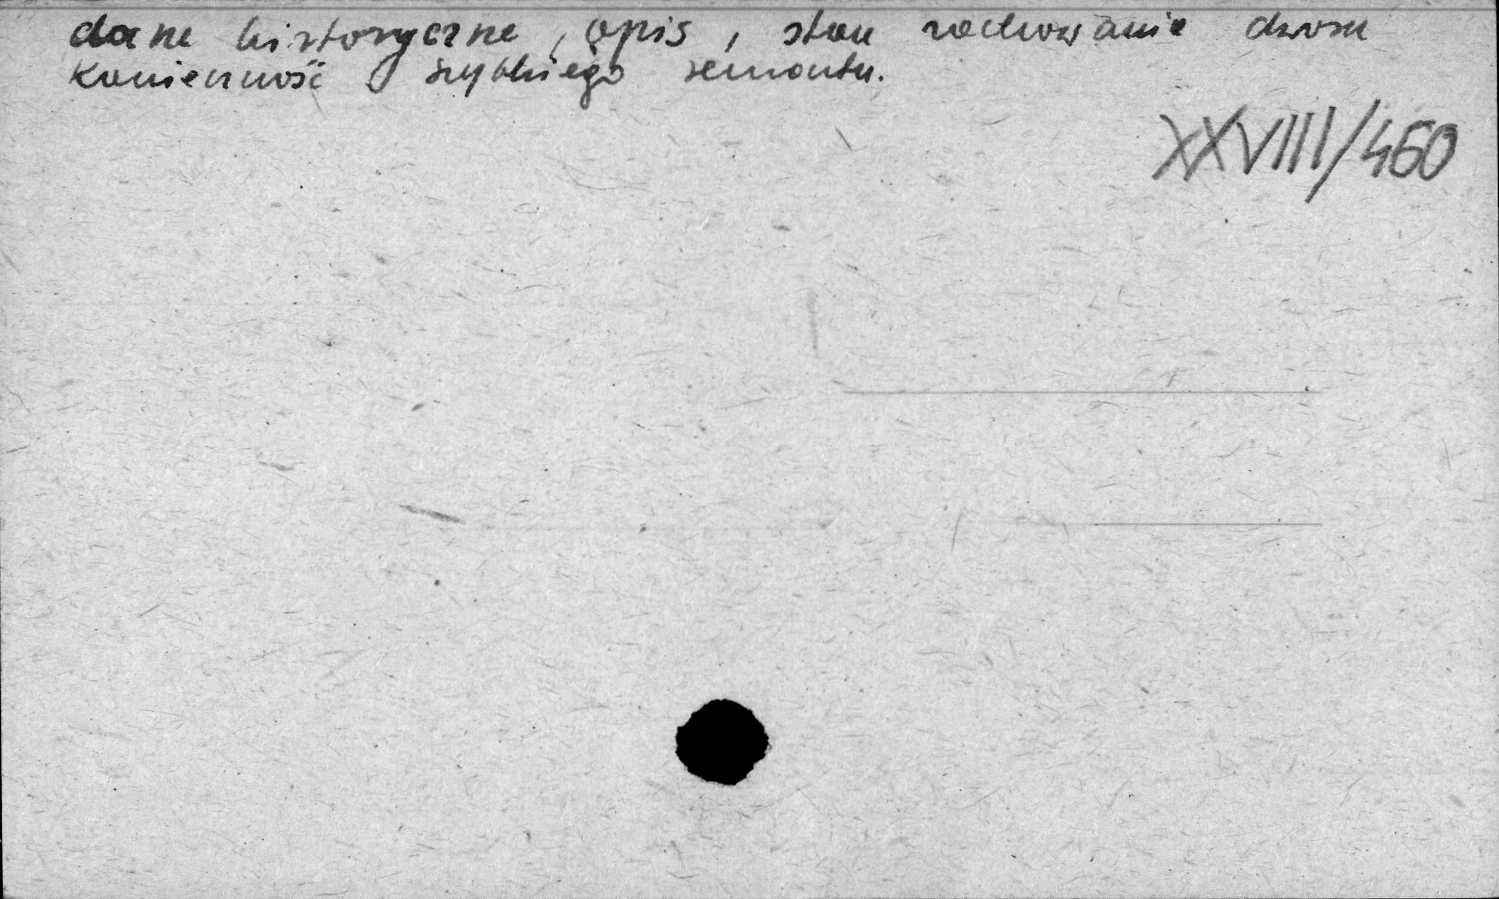 dane historyczne, opis, stan zachowanie dworu
Konieczność szybkiego remontu.
XXVIII/460